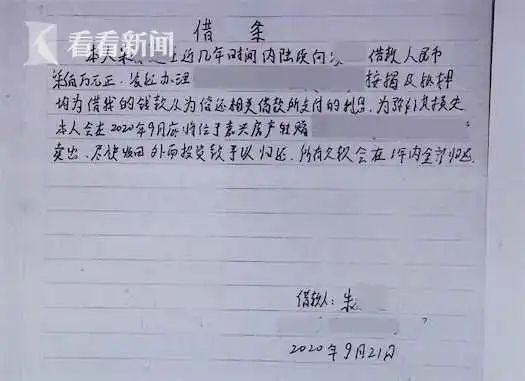 看看新闻
借条
本人朱 近几年时间内陆续向 借款人民币
柒佰万元正。 办理 按揭及抵押
均为借我的钱款及为偿还相关借款所支付的利息,为弥补其损失
本人会在2020年9月底将位于嘉兴房产
卖出、尽快收回外面投资款予以归还、所有欠款会在1年内全部归还
借款人:朱
2020年9月21日